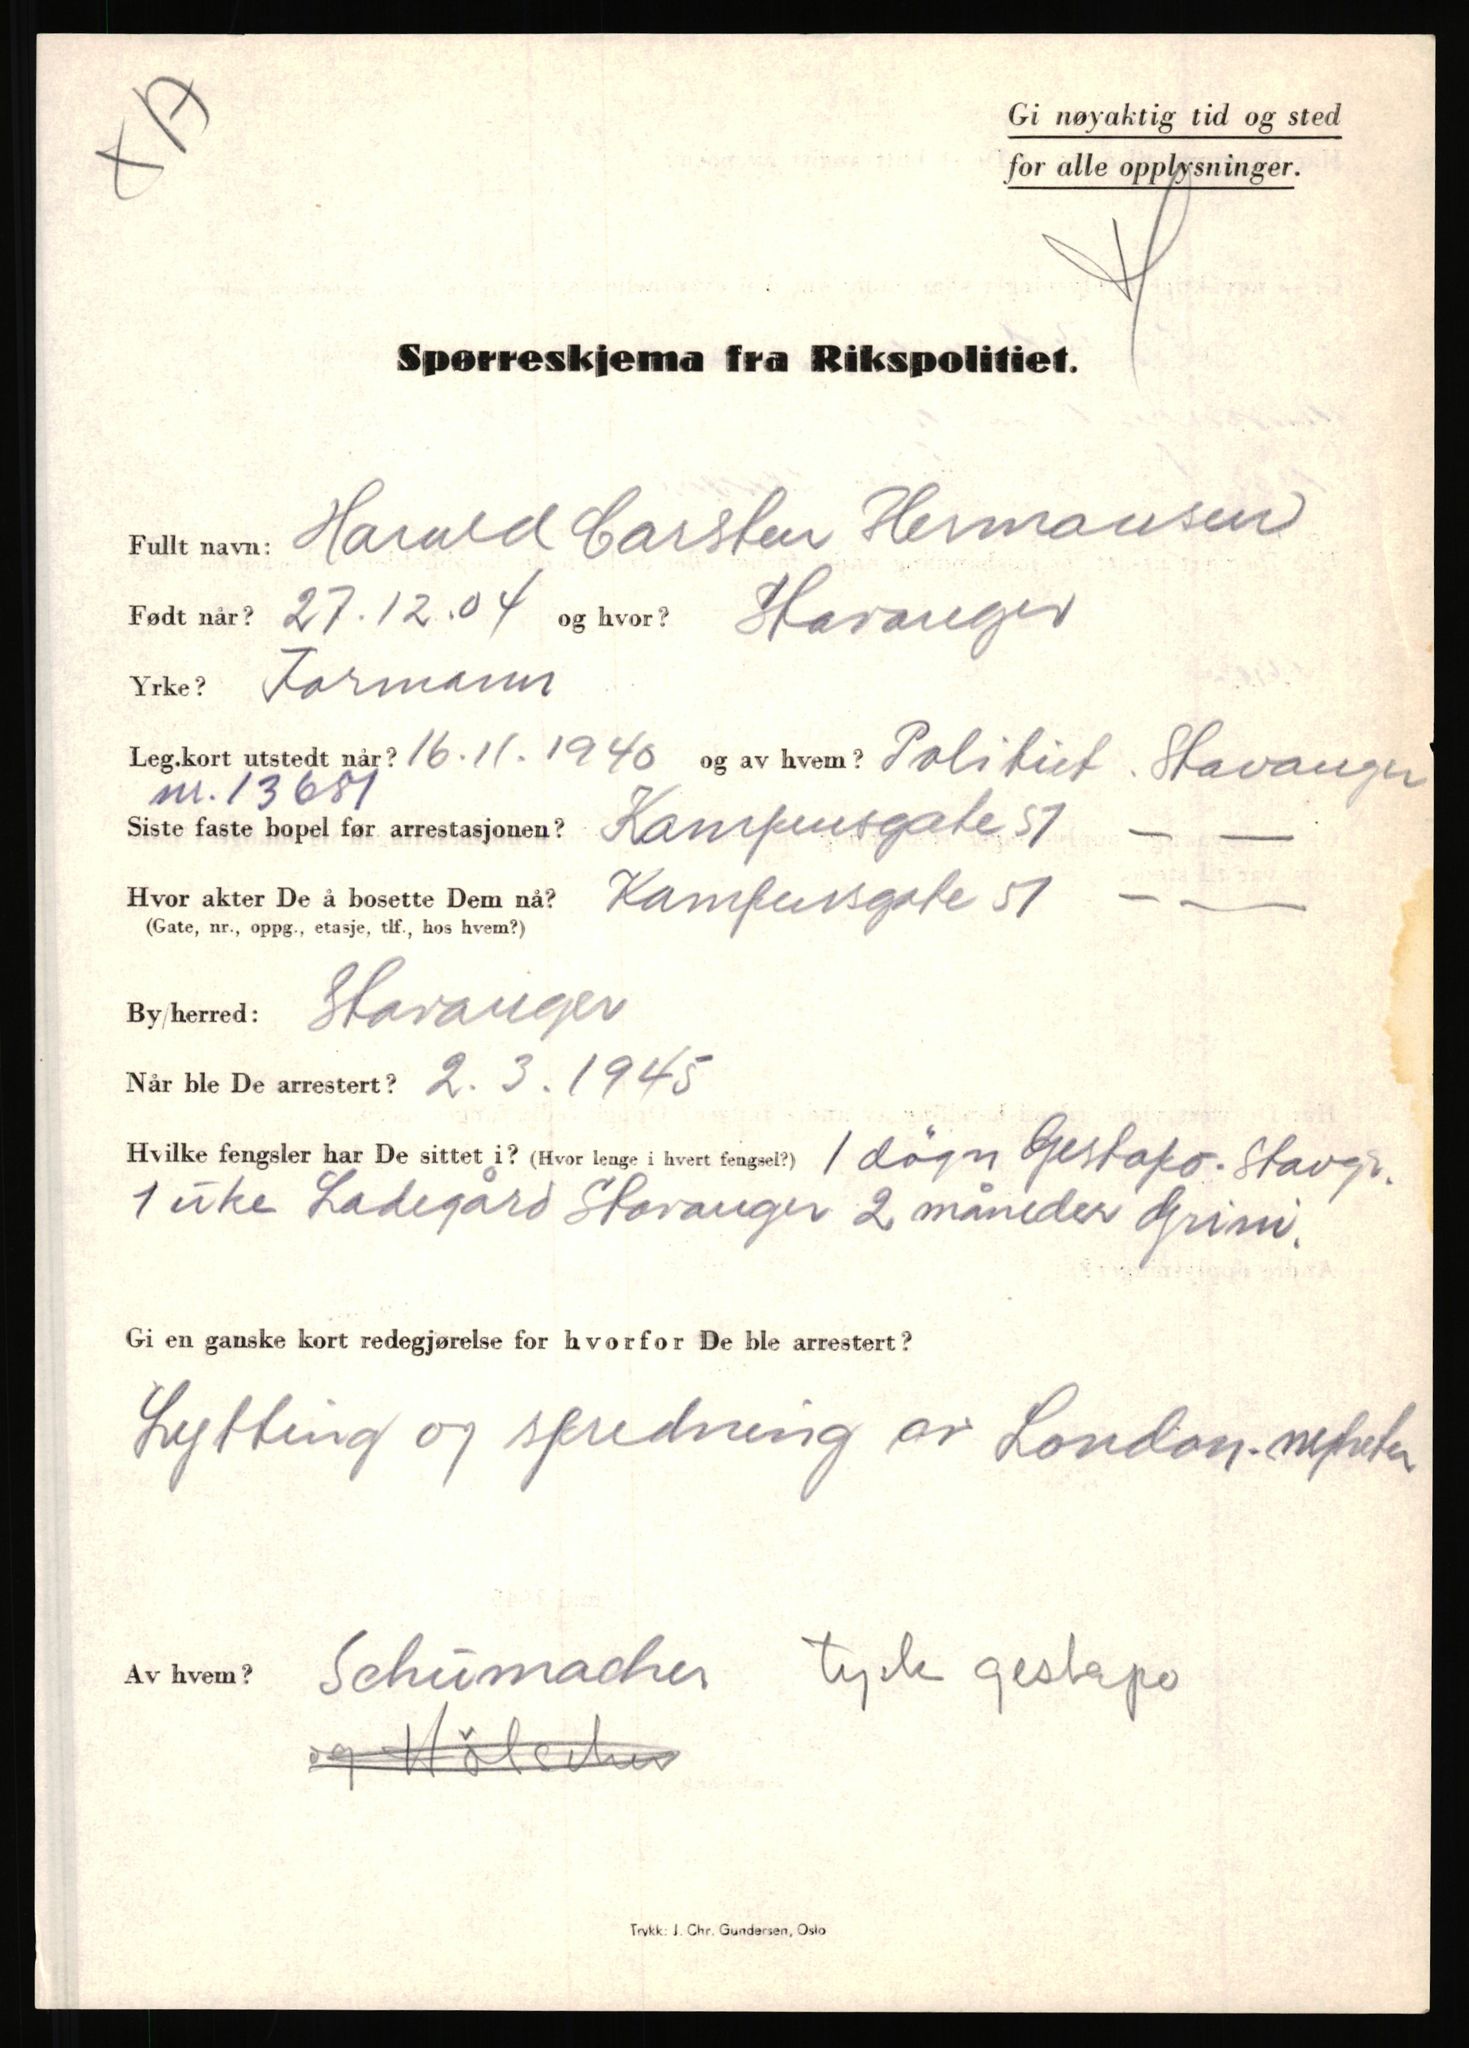 XA
Gi nøyaktig tid og sted
for alle opplysninger.
Spørreskjema fra Rikspolitiet.
Fullt navn: Harald Carsten Hermansen
Født når? 27.12.04 og hvor? Stavanger
Yrke? Formann
Leg.kort utstedt når? 16.11.1940 og av hvem? Politiet. Stavanger
nr. 13681
Siste faste bopel før arrestasjonen? Kampensgate 51 — —
Hvor akter De å bosette Dem nå? Kampensgate 51 — —
(Gate, nr., oppg., etasje, tlf., hos hvem?)
By/herred: Stavanger
Når ble De arrestert? 2.3.1945
Hvilke fengsler har De sittet i? (Hvor lenge i hvert fengsel?) 1 døgn Gestapo. Stavgr.
1 uke Ladegård Stavanger 2 måneder Grini.
Gi en ganske kort redegjørelse for hvorfor De ble arrestert?
Lytting og spredning av London-nyheter
Av hvem? Schumacher tysk gestapo
og Hölscher
Trykk: J. Chr. Gundersen, Oslo